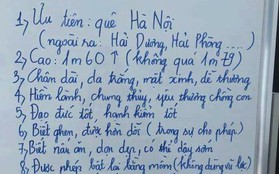 1, Ưu tiên: quê Hà Nội
(ngoài ra: Hải Dương, Hải Phòng....)
2, Cao: 1m60 ↑ (không quá 1m79)
3, Chân dài, da trắng, mắt xinh, dễ thương
4, Hiền lành, chung thủy, yêu thương chồng con
5, Đạo đức tốt, hạnh kiểm tốt
6, Biết ghen, được hờn dỗi (trong sự cho phép)
7, Biết nấu ăn, dọn dẹp, có thể dậy sớm
8, Được phép bật lại bằng mồm (không dùng vũ lực)